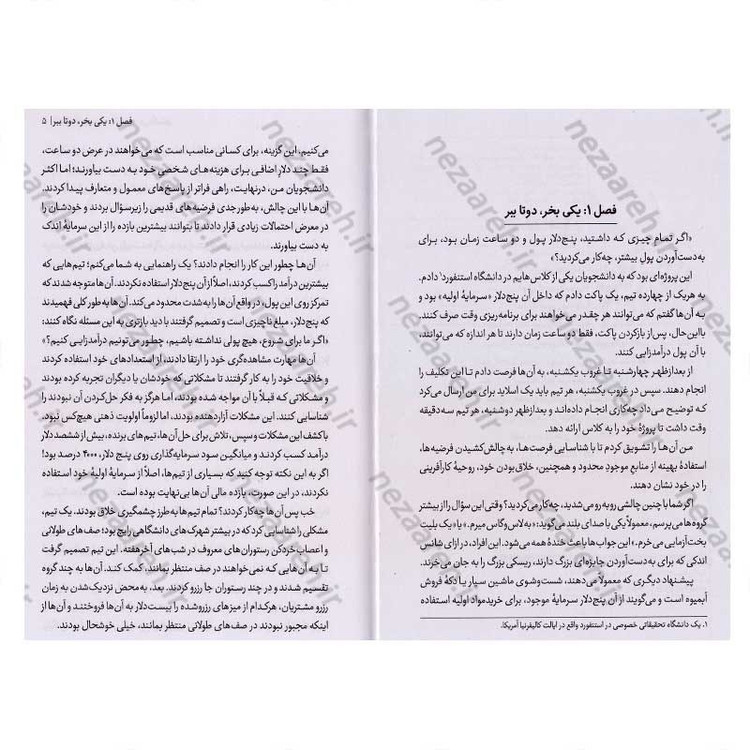 فصل ۱: یکی بخر، دوتا ببر
«اگر تمام چیزی که داشتید، پنج‌دلار پول و دو ساعت زمان بود، برای
به‌دست‌آوردن پول بیشتر، چه‌کار می‌کردید؟»
این پروژه‌ای بود که به دانشجویان یکی از کلاس‌هایم در دانشگاه استنفورد۱ دادم.
به هریک از چهارده تیم، یک پاکت دادم که داخل آن پنج‌دلار «سرمایهٔ اولیه» بود و
به آن‌ها گفتم که می‌توانند هر چقدر می‌خواهند برای برنامه‌ریزی وقت صرف کنند.
بااین‌حال، پس از بازکردن پاکت، فقط دو ساعت زمان دارند تا هر اندازه که می‌توانند،
با آن پول درآمدزایی کنند.
از بعدازظهر چهارشنبه تا غروب یکشنبه، به آن‌ها فرصت دادم تا این تکلیف را
انجام دهند. سپس در غروب یکشنبه، هر تیم باید یک اسلاید برای من ارسال می‌کرد
که توضیح می‌داد چه‌کاری انجام داده‌اند و بعدازظهر دوشنبه، هر تیم سه‌دقیقه
وقت داشت تا پروژهٔ خود را به کلاس ارائه دهد.
من آن‌ها را تشویق کردم تا با شناسایی فرصت‌ها، به‌چالش‌کشیدن فرضیه‌ها،
استفادهٔ بهینه از منابع موجودِ محدود و همچنین، خلاق‌بودن خود، روحیهٔ کارآفرینی
را در خود نشان دهند.
اگر شما با چنین چالشی روبه‌رو می‌شدید، چه‌کار می‌کردید؟ وقتی این سؤال را از بیشتر
گروه‌ها می‌پرسم، معمولاً یکی با صدای بلند می‌گوید: «به لاس وگاس میرم.» یا «یک بلیت
بخت‌آزمایی می‌خرم.» این جواب‌ها باعث خندهٔ همه می‌شود. این افراد، در ازای شانس
اندکی که برای به‌دست‌آوردن جایزه‌ای بزرگ دارند، ریسکی بزرگ را به جان می‌خرند.
پیشنهاد دیگری که معمولاً می‌دهند، شست‌وشوی ماشین سیار یا دکهٔ فروش
آبمیوه است و می‌گویند از آن پنج‌دلار سرمایهٔ موجود، برای خرید مواد اولیه استفاده
۱. یک دانشگاه تحقیقاتی خصوصی در استنفورد واقع در ایالت کالیفرنیا آمریکا.
فصل ۱: یکی بخر، دوتا ببر | ۵
می‌کنیم. این گزینه، برای کسانی مناسب است که می‌خواهند در عرض دو ساعت،
فقط چند دلار اضافی برای هزینه‌های شخصی خود به دست بیاورند؛ اما اکثر
دانشجویان من، درنهایت، راهی فراتر از پاسخ‌های معمول و متعارف پیدا کردند.
آن‌ها با این چالش، به‌طورجدی فرضیه‌های قدیمی را زیرسؤال بردند و خودشان را
در معرض احتمالات زیادی قرار دادند تا بتوانند بیشترین بازده را از این سرمایهٔ اندک
به دست بیاورند.
آن‌ها چطور این کار را انجام دادند؟ یک راهنمایی به شما می‌کنم؛ تیم‌هایی که
بیشترین درآمد را کسب کردند، اصلاً از آن پنج‌دلار استفاده نکردند. آن‌ها متوجه شدند که
تمرکز روی این پول، در واقع آن‌ها را به‌شدت محدود می‌کند. آن‌ها به‌طور کلی فهمیدند
که پنج‌دلار، مبلغ ناچیزی است و تصمیم گرفتند با دید بازتری به این مسئله نگاه کنند؛
«اگر ما برای شروع، هیچ پولی نداشته باشیم، چطور می‌تونیم درآمدزایی کنیم؟»
آن‌ها مهارت مشاهده‌گری خود را ارتقا دادند، از استعدادهای خود استفاده کردند
و خلاقیت خود را به کار گرفتند تا مشکلاتی که خودشان یا دیگران تجربه کرده بودند
و مشکلاتی که قبلاً با آن مواجه شده بودند، اما هرگز به فکر حل‌کردن آن نبودند را
شناسایی کنند. این مشکلات آزاردهنده بودند، اما لزوماً اولویت ذهنی هیچ‌کس نبود.
با کشف این مشکلات و سپس، تلاش برای حل آن‌ها، تیم‌های برنده، بیش از ششصد دلار
درآمد کسب کردند و میانگین سود سرمایه‌گذاری روی پنج دلار، ۴۰۰۰ درصد بود!
اگر به این نکته توجه کنید که بسیاری از تیم‌ها، اصلاً از سرمایهٔ اولیهٔ خود استفاده
نکردند، در این صورت، بازده مالی آن‌ها بی‌نهایت بوده است.
خب پس آن‌ها چه‌کار کردند؟ تمام تیم‌ها به طرز چشمگیری خلاق بودند. یک تیم،
مشکلی را شناسایی کرد که در بیشتر شهرک‌های دانشگاهی رایج بود؛ صف‌های طولانی
و اعصاب‌خردکن رستوران‌های معروف در شب‌های آخرهفته. این تیم تصمیم گرفت
تا به آن‌هایی که نمی‌خواهند در صف منتظر بمانند، کمک کند. آن‌ها به چند گروه
تقسیم شدند و در چند رستوران جا رزرو کردند. بعد، به‌محض نزدیک‌شدن به زمان
رزرو مشتریان، هرکدام از میزهای رزروشده را بیست‌دلار به آن‌ها فروختند و آن‌ها از
اینکه مجبور نبودند در صف‌های طولانی منتظر بمانند، خیلی خوشحال بودند.
nezaareh.ir